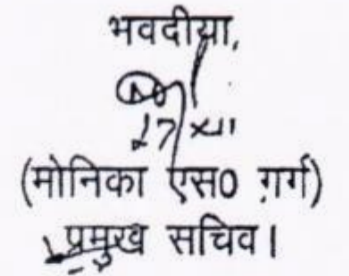 भवदीया,
17/XII
(मोनिका एस0 ग़र्ग)
प्रमुख सचिव।